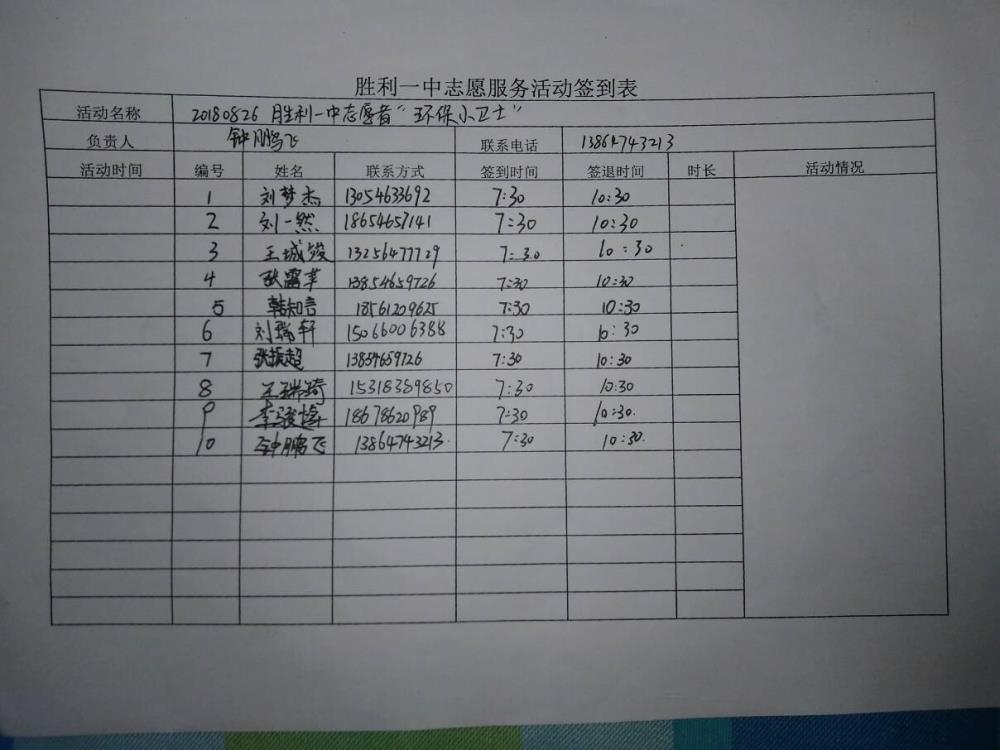 胜利一中志愿服务活动签到表
活动名称 20180826 胜利一中志愿者"环保小卫士"
负责人 钟鹏飞 联系电话 13864743213
活动时间 编号 姓名 联系方式 签到时间 签退时间 时长 活动情况
1 刘梦杰 13054633692 7:30 10:30
2 刘一然 18654657141 7:30 10:30
3 王城 13256477729 7:30 10:30
4 张露苹 13854659726 7:30 10:30
5 韩知言 18561209625 7:30 10:30
6 刘瑞轩 15066006388 7:30 10:30
7 张振超 13854659726 7:30 10:30
8 王瑞琦 15318389850 7:30 10:30
9 李骏 18678620989 7:30 10:30.
10 钟鹏飞 13864743213. 7:30 10:30.